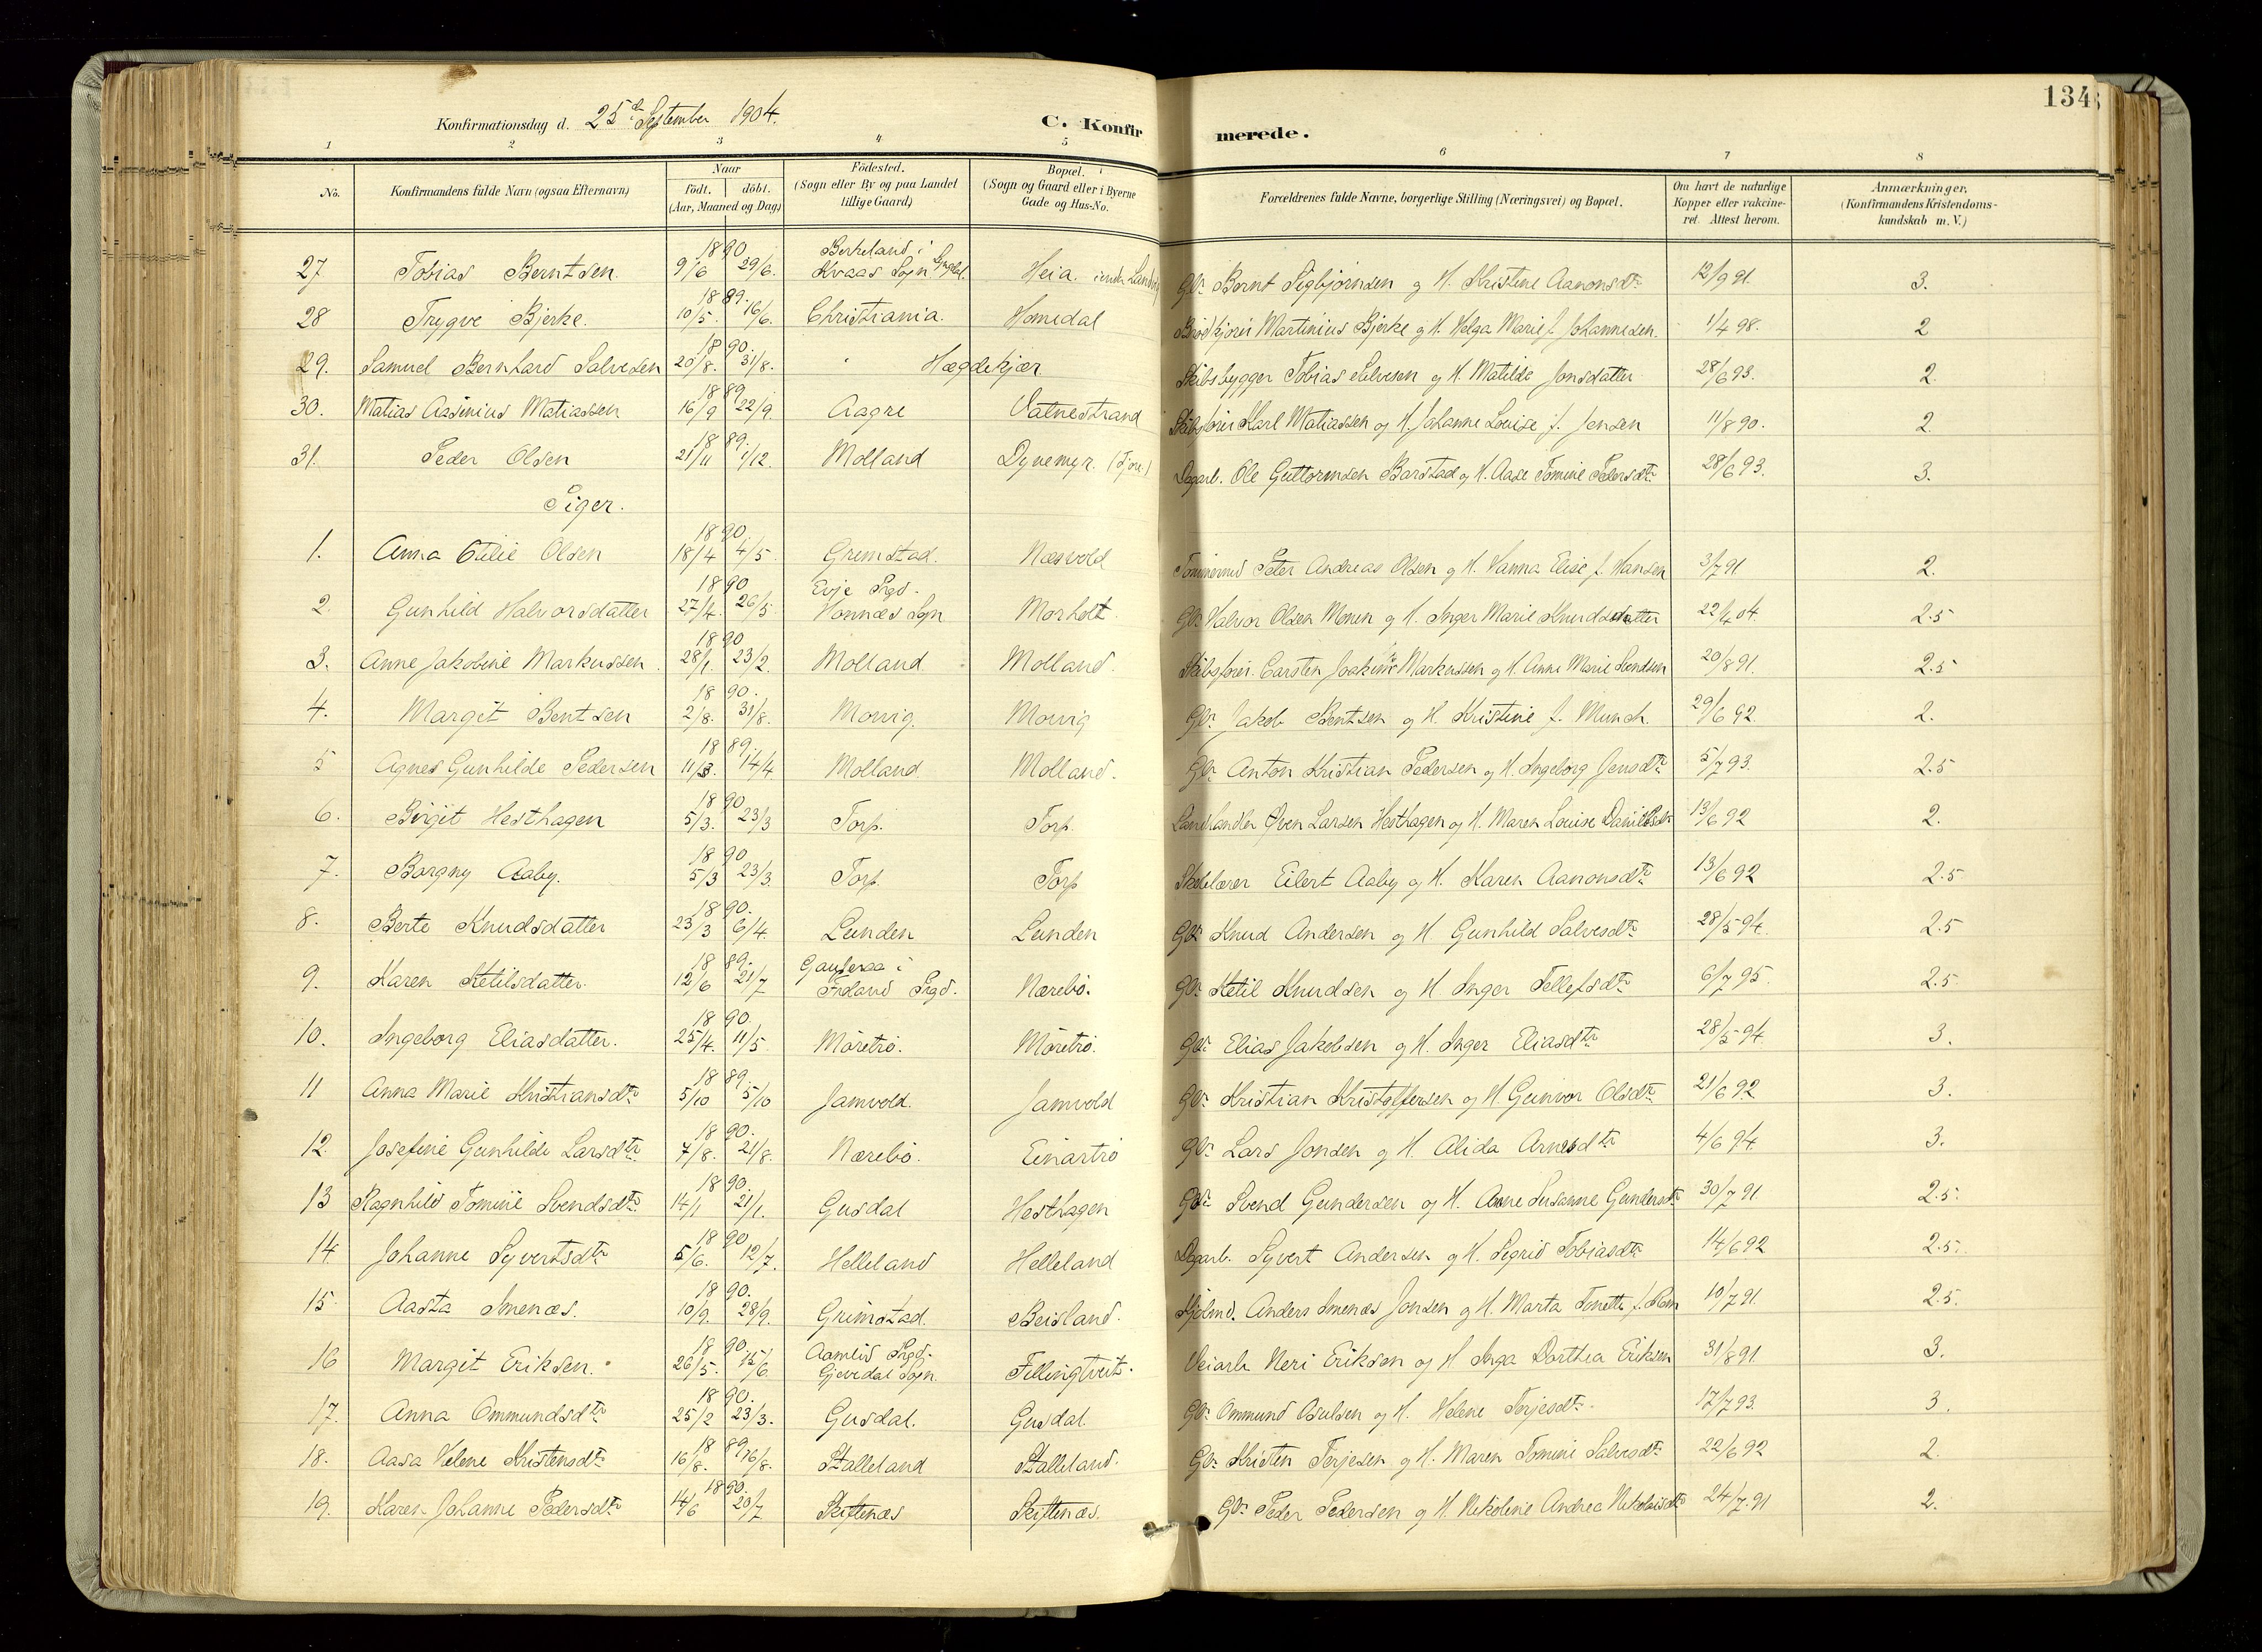 134
Konfirmationsdag d. 25de September 1904.
C. Konfirmerede.
1 2 3 4 5 6 7 8
No. Konfirmandens fulde Navn (ogsaa Efternavn) Naar födt. döbt. (Aar, Maaned og Dag) Födested. (Sogn eller By og paa Landet tillige Gaard) Bopæl. (Sogn og Gaard eller i Byerne Gade og Hus-No. Forældrenes fulde Navne, borgerlige Stilling (Næringsvei) og Bopæl. Om havt de naturlige Kopper eller vakcineret. Attest herom. Anmærkninger. (Konfirmandens Kristendomskundskab m. V.)
27 Tobias Berntsen. 1890 9/6 29/6. Birkeland i Kvaas Sogn Lyngdal. Heia. Landvig Gbr. Bernt Sigbjørnsen og H. Kristine Aanonsdtr 12/9 91. 3.
28 Trygve Bjerke. 1889. 10/5. 16/6. Christiania. Homedal Martinius Bjerke og H. Helga Marie f. Johannesen. 1/4 98. 2
29. Samuel Bernhard Salvesen 1890. 20/8. 31/8. Hægdekjær Skibsbygger Tobias Salvesen og H. Matilde Jonsdatter 28/6 93. 2.
30. Matias Aasinius Matiassen 1889 16/9 22/9. Aagre Vatnestrand Skibsfører Karl Matiassen og H. Johanne Louise f. Jensen 11/8 90. 2.
31. Peder Olsen 1889. 21/11 1/12. Molland Dynemyr. (Fjære) Dagarb. Ole Guttormsen Barstad og H. Aase Tomine Pedersdtr 28/6 93. 3.
Piger.
1. Anna Otilie Olsen 1890 18/4 4/5. Grimstad. Næsvold Tømmermd Peter Andreas Olsen og H. Hanna Elise f. Hansen 3/7 91 2.
2. Gunhild Halvorsdatter 1890 27/4. 26/5. Evje Prgd. Honnæs Sogn Morholt. Gbr. Halvor Olsen Monen og H. Inger Marie Knudsdatter 22/4 04. 2.5
3. Anne Jakobine Markussen. 1890 28/1. 23/2. Molland Molland. Skibsfører. Carsten Joakim Markussen og H. Anne Marie Svendsen 20/8 91. 2.5
4. Margit Bentsen 1890. 2/8. 31/8. Morvig. Morvig Gbr. Jakob Bentsen og H. Kristine f. Munch. 29/6 92. 2.
5 Agnes Gunhilde Pedersen 1889. 11/3. 14/4 Molland Molland. Gbr. Anton Kristian Pedersen og H. Ingeborg Jensdtr 5/7 93. 2.5
6. Birgit Hesthagen 1890 5/3. 23/3 Torp. Torp. Landhandler Sven Larsen Hesthagen og H. Maren Louise Danielsdtr 13/6 92 2.
7. Borgny Aaby. 1890 5/3 23/3. Torp. Torp Skolelærer Eilert Aaby og H. Karen Aanonsdtr 13/6 92 2.5
8. Berte Knudsdatter 1890. 23/3 6/4. Lunden Lunden Gbr. Knud Andersen og H. Gunhild Salvesdtr. 28/5 94. 2.5
9. Karen Ketilsdatter. 1889. 12/6 21/7 i Finland Prgd. Nærebö. Gbr. Ketil Knudsen og H Inger Tellefsdtr 6/7 95. 2.5.
10. Ingeborg Eliasdatter. 1890. 25/4. 11/5. Möretrö. Möretrö. Gbr. Elias Jakobsen og H. Inger Eliasdtr 28/5 94. 3.
11 Anna Marie Kristiansdtr 1889. 5/10 5/10 Jamvold. Jamvold Gbr. Kristian Kristoffersen og H. Gunvor Olsdtr. 21/6 92 3.
12. Josefine Gunhilde Larsdtr. 1890. 7/8. 21/8. Nærebö. Einartrö Gbr. Lars Jonsen og H. Alida Arnesdtr 4/6 94. 3.
13 Ragnhild Tomine Svendsdtr. 1890. 14/1 21/1. Gusdal Hesthagen Gbr. Svend Gundersen og H. Anne Susanne Gundersdtr 30/7 91 2.5.
14. Johanne Syvertsdtr 1890 5/6. 12/7. Helleland Helleland Dagarb. Syvert Andersen og H. Sigrid Tobiasdtr. 14/6 92 2.5.
15. Aasta Imenæs. 1890. 10/9. 28/9. Grimstad. Beisland. Anders Imenæs Jonsen og H. Marta Tonette f. 10/7 91. 2.5.
16 Margit Eriksen. 1890. 26/5. 15/6. Aamlid Prgd. Gjövdal Sogn. Fillingtveit. Veiarb. Neri Eriksen og H Inga Dorthea Eriksen 31/8 91 3.
17. Anna Ommundsdtr 1890. 25/2 23/3. Gusdal. Gusdal. Gbr. Ommund Osulsen og H. Helene Terjesdtr. 17/7 93. 3.
18. Aasa Helene Kristensdtr. 1889. 16/8. 16/8. Stalleland Stalleland. Gbr. Kristen Terjesen og H. Maren Tomine Salvesdtr. 22/6 92 2.
19. Karen Johanne Pedersdtr 1890. 14/6 20/7 Skiftenæs Skiftenæs. Gbr. Peder Pedersen og H. Nikoline Andrea Nikolaisdtr 24/7. 91 2.